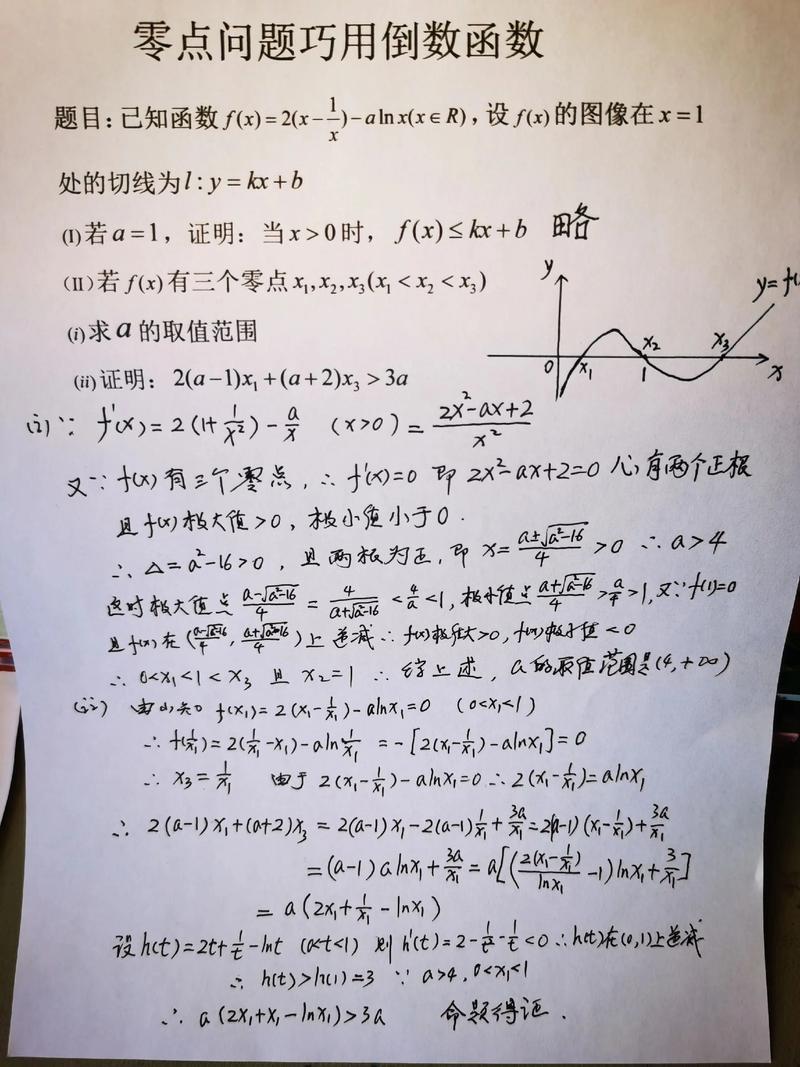 零点问题巧用倒数函数
题目：已知函数 f(x)=2(x-1/x)-alnx(x∈R)，设 f(x) 的图像在 x=1
处的切线为 l:y=kx+b
(I)若 a=1，证明：当 x>0 时，f(x)≤kx+b 略
(II)若 f(x) 有三个零点 x₁,x₂,x₃(x₁<x₂<x₃)
(i)求 a 的取值范围
(ii)证明：2(a-1)x₁+(a+2)x₃>3a
y
y=f(
0
x₁
x₂
1
x₃
x
(i)∵ f'(x)=2(1+1/x²)-a/x (x>0)=(2x²-ax+2)/x²
又∵f(x)有三个零点，∴f'(x)=0 即 2x²-ax+2=0 必有两个正根
且f(x)极大值>0，极小值小于0.
∴△=a²-16>0，且两根为正，即 x=(a±√(a²-16))/4>0 ∴a>4
这时极大值点 (a-√(a²-16))/4=4/(a+√(a²-16))<4/a<1，极小值点 (a+√(a²-16))/4>a/4>1，又∵f(1)=0
且f(x)在((a-√(a²-16))/4,(a+√(a²-16))/4)上递减∴f(x)极大>0，f(x)极小值<0
∴0<x₁<1<x₃ 且 x₂=1 ∴综上述，a的取值范围是(4,+∞)
(ii) 由(i)知 f(x₁)=2(x₁-1/x₁)-alnx₁=0 (0<x₁<1)
∴f(1/x₁)=2(1/x₁-x₁)-aln1/x₁=-[2(x₁-1/x₁)-alnx₁]=0
∴x₃=1/x₁ 由于 2(x₁-1/x₁)-alnx₁=0 ∴2(x₁-1/x₁)=alnx₁
∴ 2(a-1)x₁+(a+2)x₃=2(a-1)x₁-2(a-1)1/x₁+3a/x₁=2(a-1)(x₁-1/x₁)+3a/x₁
=(a-1)alnx₁+3a/x₁=a[(2(x₁-1/x₁)/lnx₁-1)lnx₁+3/x₁]
=a(2x₁+1/x₁-lnx₁)
设h(t)=2t+1/t-lnt (0<t<1) 则h'(t)=2-1/t²-1/t<0∴h(t)在(0,1)上递减
∴h(t)>h(1)=3 ∵a>4,0<x₁<1
∴a(2x₁+x₁-lnx₁)>3a 命题得证.